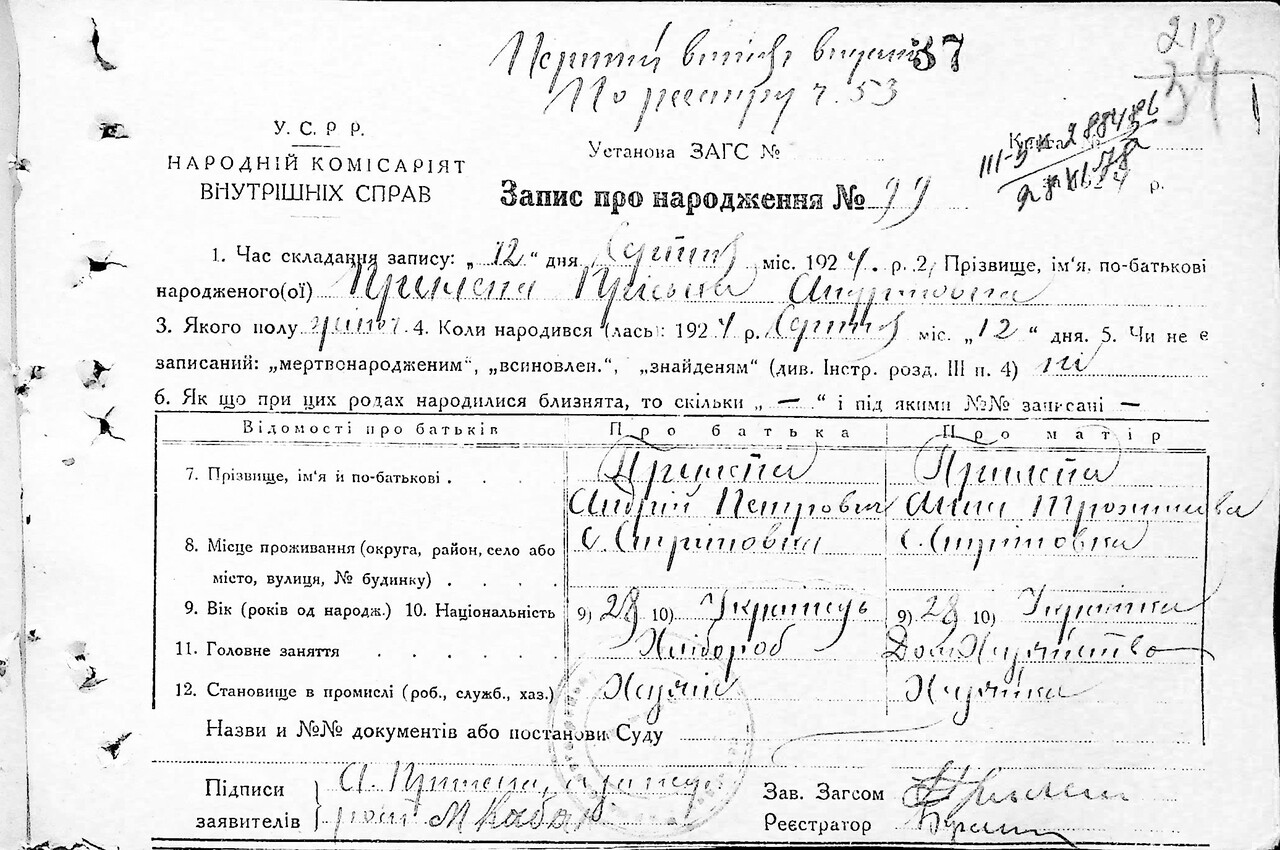 Перший випис видано 37
По реєстру ч. 53
218
34
У. С. Р Р.
НАРОДНІЙ КОМІСАРІЯТ
ВНУТРІШНІХ СПРАВ
Установа ЗАГС №
Книга №
III-
р.
Запис про народження № 99
1. Час складання запису: „ 12 “ дня Серпня міс. 1924. р. 2, Прізвище, ім'я, по-батькові
народженого(ої) Андріївна
3. Якого полу жіноч 4. Коли народився (лась): 1924 р. Серпня міс. „ 12 “ дня. 5. Чи не є
записаний: „мертвонародженим“, „всиновлен.“, „знайденям“ (див. Інстр. розд. III п. 4) ні
6. Як що при цих родах народилися близнята, то скільки „ — “ і під якими №№ записані —
Відомості про батьків Про батька Про матір
7. Прізвище, ім'я й по-батькові
Андрій Петрович Анна
8. Місце проживання (округа, район, село або місто, вулиця, № будинку) С. С.
9. Вік (років од народж.) 10. Національність 9) 28 10) Українець 9) 28 10) Українка
11. Головне заняття Хлібороб Дом Хазяйство
12. Становище в промислі (роб., служб., хаз.) Хазяїн Хазяйка
Назви и №№ документів або постанови Суду
Підписи
заявителів
Зав. Загсом
Реєстратор